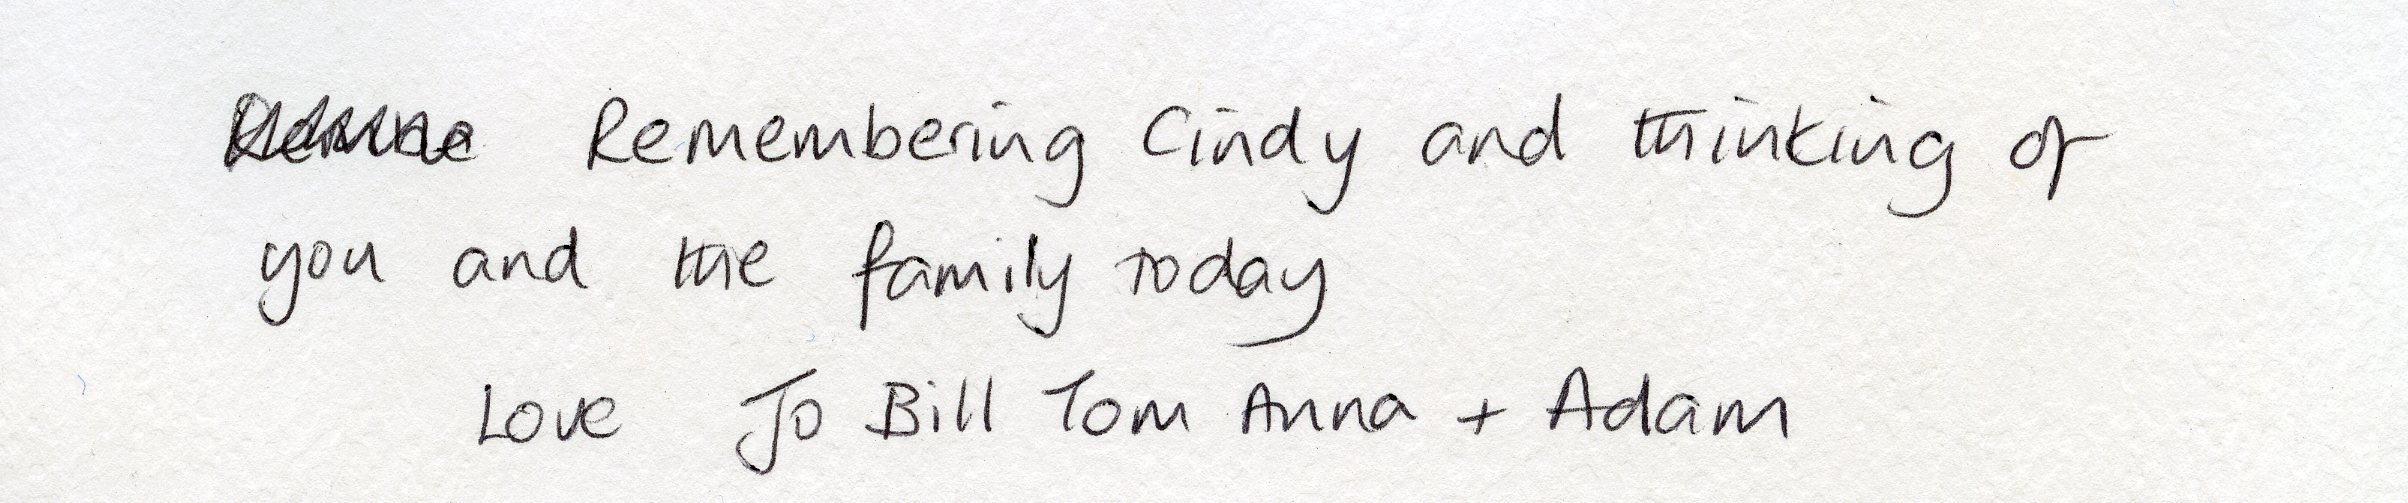 Remembering Cindy and thinking of
you and the family today
Love Jo Bill Tom Anna + Adam